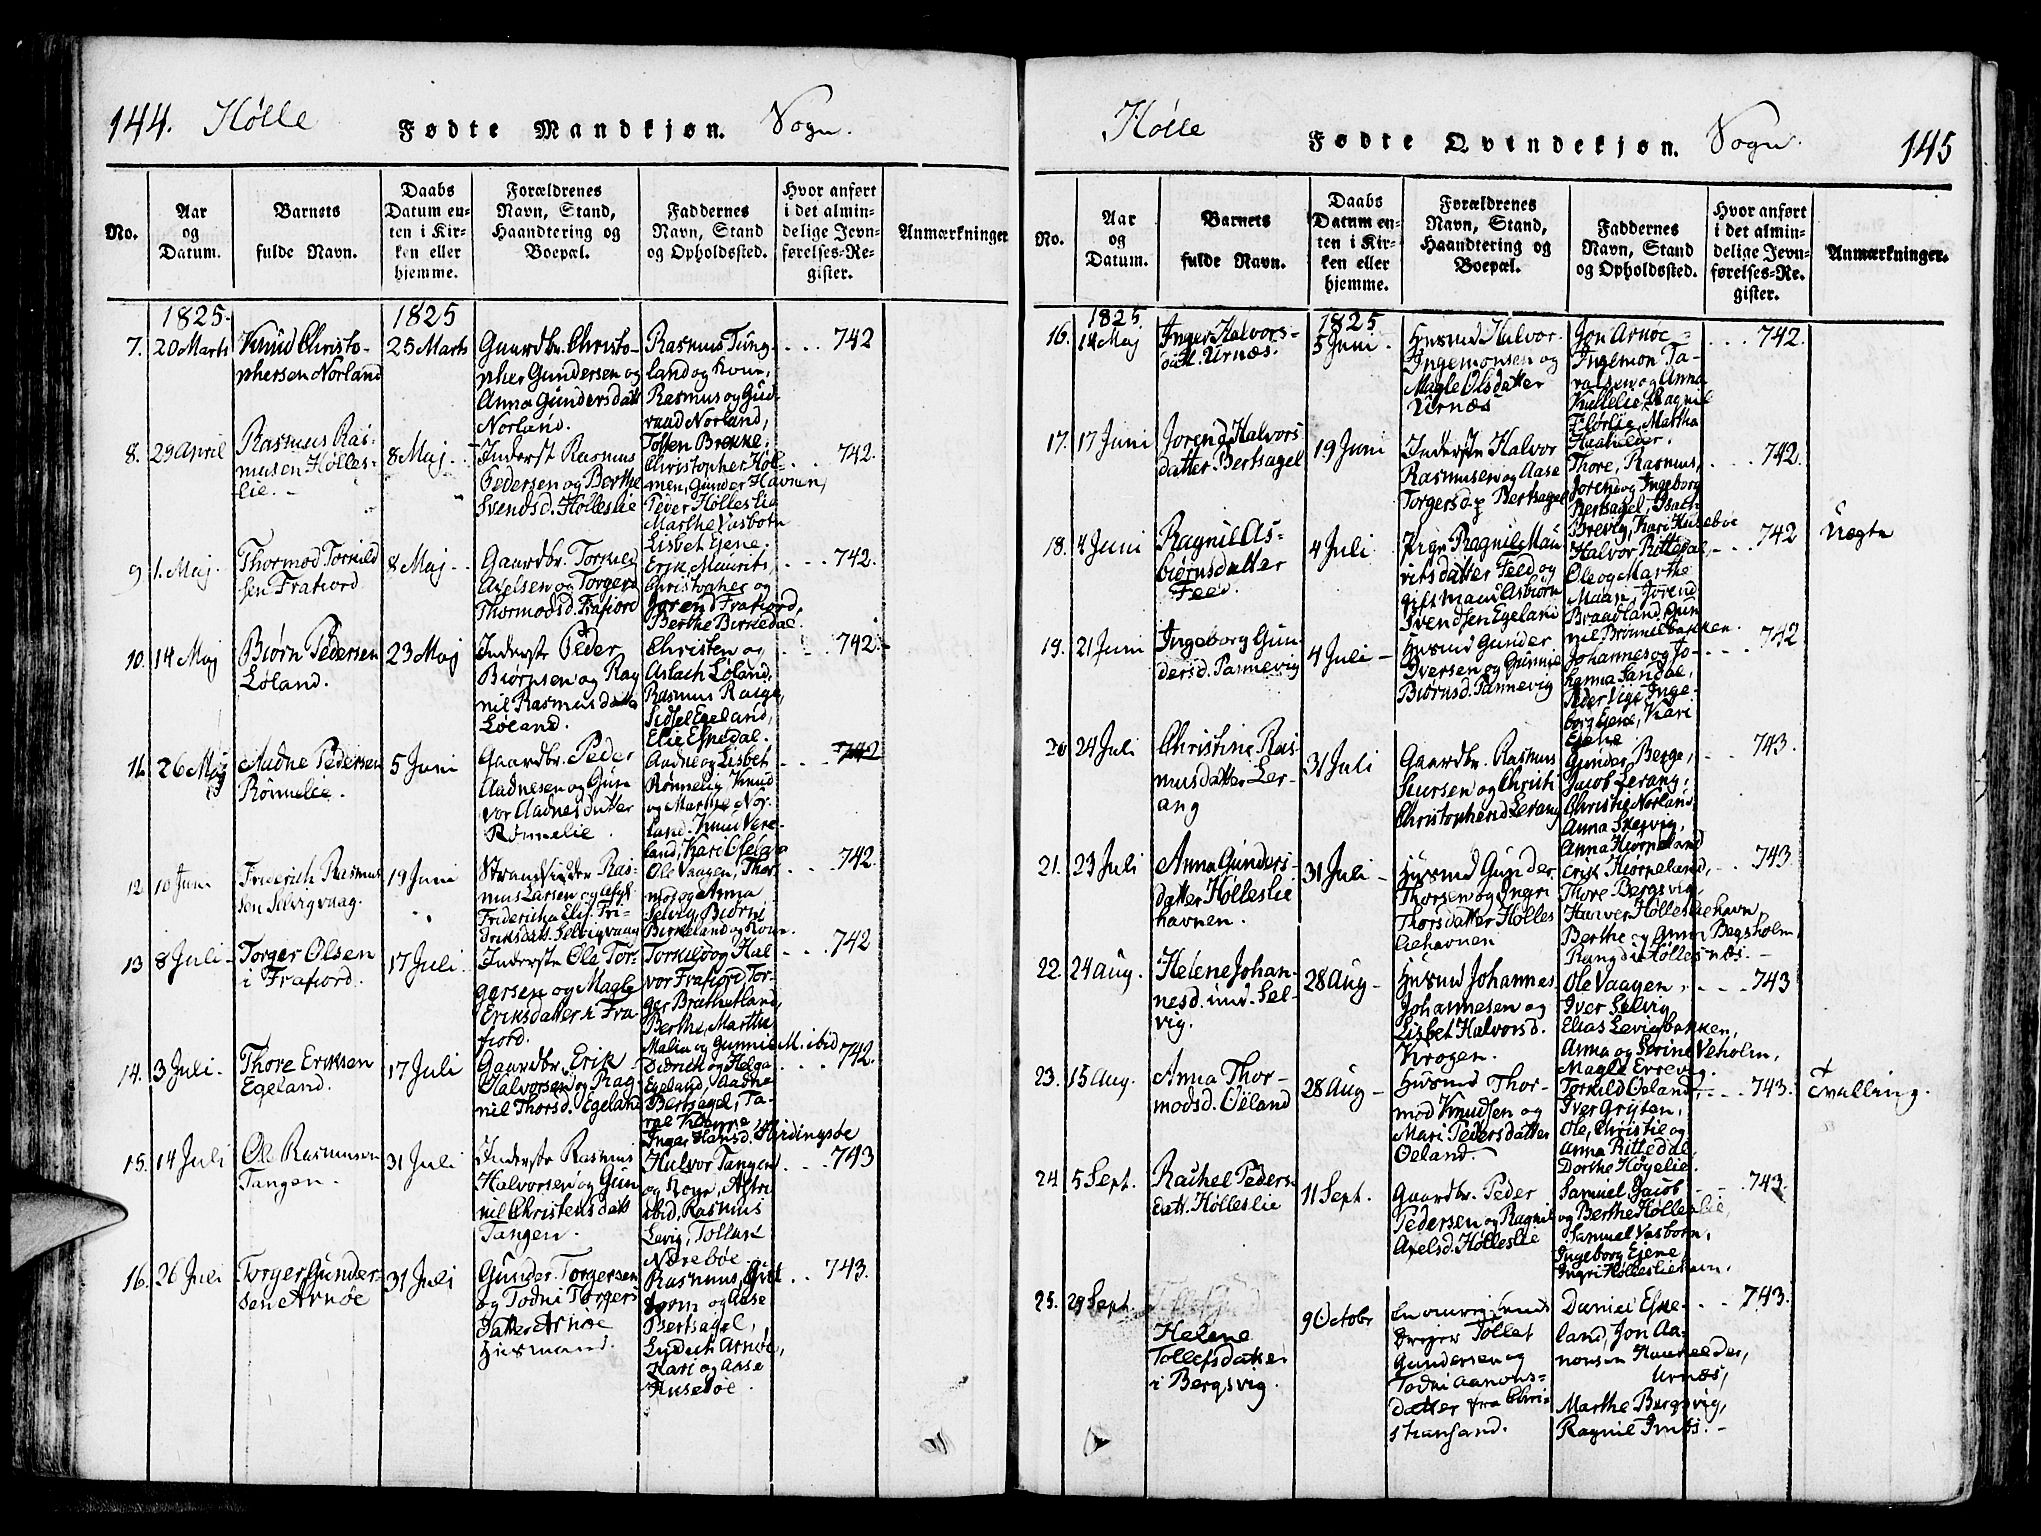 144. Hølle Fødte Mandkjøn. Sogn.
No.
Aar
og
Datum.
Barnets
fulde Navn.
Daabs
Datum en-
ten i Kir-
ken eller
hjemme.
Forældrenes
Navn, Stand,
Haandtering og
Boepæl.
Faddernes
Navn, Stand
og Opholdssted.
Hvor anført
i det almin-
delige Jevn-
førelses-Re-
gister.
Anmærkninger
1825. 1825
7. 20 Marts
Knud Christo-
phersen Norland
25 Marts
Gaardbr. Christo-
pher Gundersen og
Anna Gundersdatt
Norland.
Rasmus Tung-
land og Kone,
Rasmus og Gud-
vaad Norland,
Tosten Brekke.
742
8. 29 April
Rasmus Ras-
musen Hølles-
lie.
8 Maj
Inderst Rasmus
Pedersen og Berthe
Svendsd. Hølleslie
Christopher Høl-
men, Gunder Havnen,
Peder Hølleslie
Marthe Vasbotn
Lisbet Ejene.
742.
9 1. Maj.
Thormod Torkild
sen Frafiord
8 Maj
Gaardbr. Torkild
Axelsen og Torgers
Thormodsd. Frafiord
Erik Maurits,
Christopher og
Jorend Frafiord,
Berthe Birkedal.
742.
10. 14 Maj
Biørn Pedersen
Løland.
23 Maj
Inderste Peder
Biørnsen og Rag
nil Rasmusdatter
Løland.
Christen og
Aslach Løland,
Rasmus Rasge,
Sidsel Egeland,
Elie Espedal.
742
11. 26 Maj
Aadne Pedersen
Rønnelie.
5 Juni
Gaardbr. Peder
Aadnesen og Gun
vor Aadnesdatter
Rønnelie.
Aadne og Lisbet
Rønnelig Knud
og Marthe Nor-
land. Knud Vere-
land, Kari
742
12 10 Juni
Friderich Rasmus
sen Selvigvaag.
19 Juni
Strandsidder Ras-
mus Larsen og
Fridericha Elis. Fri-
driksdatt. Selvigvaag
Ole Vaagen, Thor-
mod og Anna
Selvig, Biørn
Birkeland og Kone.
742.
13 8 Juli
Torger Olsen
i Frafiord.
17 Juli
Inderste Ole Tor-
gersen og Magle
Eriksdatter i Fra
fiord.
Torkild og Hal
vor Frafiord Tor-
ger Brathetland,
Berthe, Marthe
Malia og Gunnild M. ibid
742
14. 3 Juli.
Thore Eriksen
Egeland.
17 Juli
Gaardbr. Erik
Halvorsen og Rag-
nil Thorsd. Egeland
Didrich og Helga
Egeland Aadne
Bertsagel, Ta-
Inger Hansd. Hidingsøe
742.
15. 14 Juli
Ole Rasmusen
Tangen.
31 Juli
Inderste Rasmus
Halvorsen og Gun
nil Christensdatt
Tangen.
Halvor Tangen
og Kone, Astri
ibid, Rasmus
Levig, Tollak
Nærebøe
743
16. 26 Juli
Torger Gunder-
sen Arnøe
31 Juli
Gunder Torgersen
og Todni Torgers
datter Arnøe
Husmand.
Rasmus,
og Aase
Bertsagel,
Endich Arnøe,
Kari og Aase
Husebøe.
743.
Hølle Fødte Qvindekjøn. Sogn. 145
No.
Aar
og
Datum.
Barnets
fulde Navn.
Daabs
Datum en-
ten i Kir-
ken eller
hjemme.
Forældrenes
Navn, Stand,
Haandtering og
Boepæl.
Faddernes
Navn, Stand
og Opholdssted.
Hvor anført
i det almin-
delige Jevn-
førelses-Re-
gister.
Anmærkninger.
1825. 1825
16. 14 Maj
Inger Halvors-
datt. Urnæs.
5 Juni
Husmd Halvor
Ingemonsen og
Magle Olsdatter
Urnæs
Jon Arnøe
Ingemon Ta-
ralsen og Anna
Ragnil
Flørlie, Martha
Haahelder.
742.
17. 17 Juni
Jorend Halvors
datter Bertsagel
19 Juni
Inderste Halvor
Rasmusen og Aase
Torgersd. Bertsagel
Thore, Rasmus,
Jorend og Ingeborg
Bertsagel, Isach
Brevig, Kari Husebøe
742.
18. 4 Juni
Ragnil As-
biørnsdatter
Feed.
4 Juli
Pige Ragnil Mau
ritsdatter Feed og
gift Mand Asbiørn
Svendsen Egeland
Halvor Rittedal,
Ole og Marthe
Maan, Jorend
Braadland, Gun
nil Brommelbakken.
742
Uægte
19. 21 Juni
Ingeborg Gun
dersd. Pannevig
4 Juli
Husmd Gunder
Iversen og Gunnil
Biørnsd. Pannevig
Johannes og Jo-
hanna Sandal,
Peder Vige, Inge-
borg Ejene, Kari
Ejene
742
20 24 Juli
Christine Ras
musdatter Ler-
ang
31 Juli
Gaardbr. Rasmus
Siursen og Christi
Christophersd Lerang
Gunder Berge,
Jacob Lerang,
Christie Norland
Anna Skervig,
Anna Hiørneland
743.
21. 23 Juli
Anna Gunders-
datter Hølleslie
havnen.
31 Juli
Husmd Gunder
Thorsen og Ingri
Thorsdatter Hølles
liehavnen
Erik Hiørneland,
Thore Bergsvig,
Halvor Hølleslie havn,
Berthe og Anna Bergsholm,
Rangdi Høllesnæs.
743
22. 24 Aug.
Helene Johan-
nesd. Sel-
vig.
28 Aug
Husmd Johannes
Johannesen og
Lisbet Halvorsd.
Krogen.
Ole Vaagen,
Iver Selvig
Elias Levigbakken,
Anna og Serine Veholm,
Magle Errevig.
743
23. 15 Aug.
Anna Thor-
modsd. Oeland
28 Aug
Husmd Thor-
mod Knudsen og
Mari Pedersdatter
Oeland.
Torkild Oeland,
Iver Gryten,
Ole, Christie og
Anna Rittedal,
Dorthe Høyelie.
743.
Tvalling.
24 5 Sept.
Rachel Peders-
datt. Hølleslie
11 Sept.
Gaardbr. Peder
Pedersen og Ragnil
Axelsd. Hølleslie
Samuel, Jacob
og Berthe Hølleslie,
Samuel Vasbotn,
Ingeborg Ejene,
Ingri Hølleslie havn.
743.
25. 29 Sept.
Helene
Tollefsdatter
i Bergsvig.
9 Octobr
En omreisende
Tollef
Gundersen og
Todni Aanons-
datter fra Chri-
stiansand.
Daniel Eske-
land, Jon Aa-
nonsen Haahelder,
Urnæs,
Marthe Bergsvig,
Ragnil Urnæs.
743.